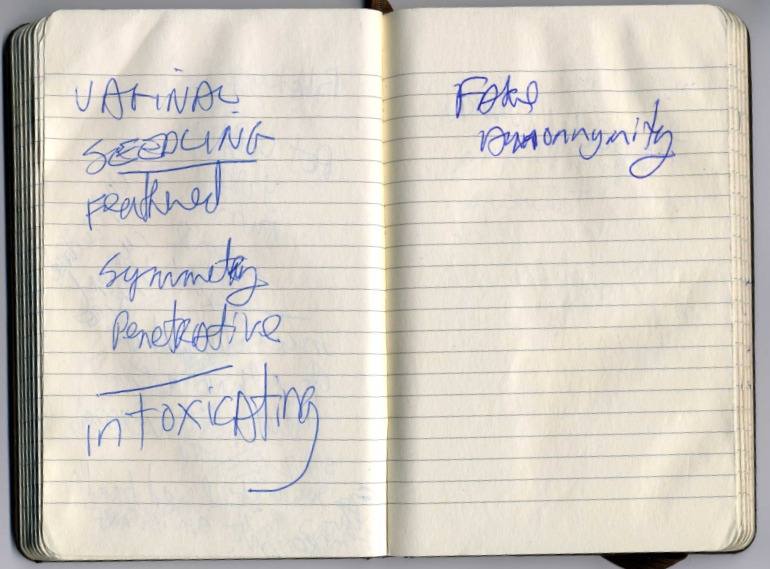 VAGINAL
SEEDLING
Feathered
Symmetry
Penetrative
inToxicAting
FAke
Anonnymity